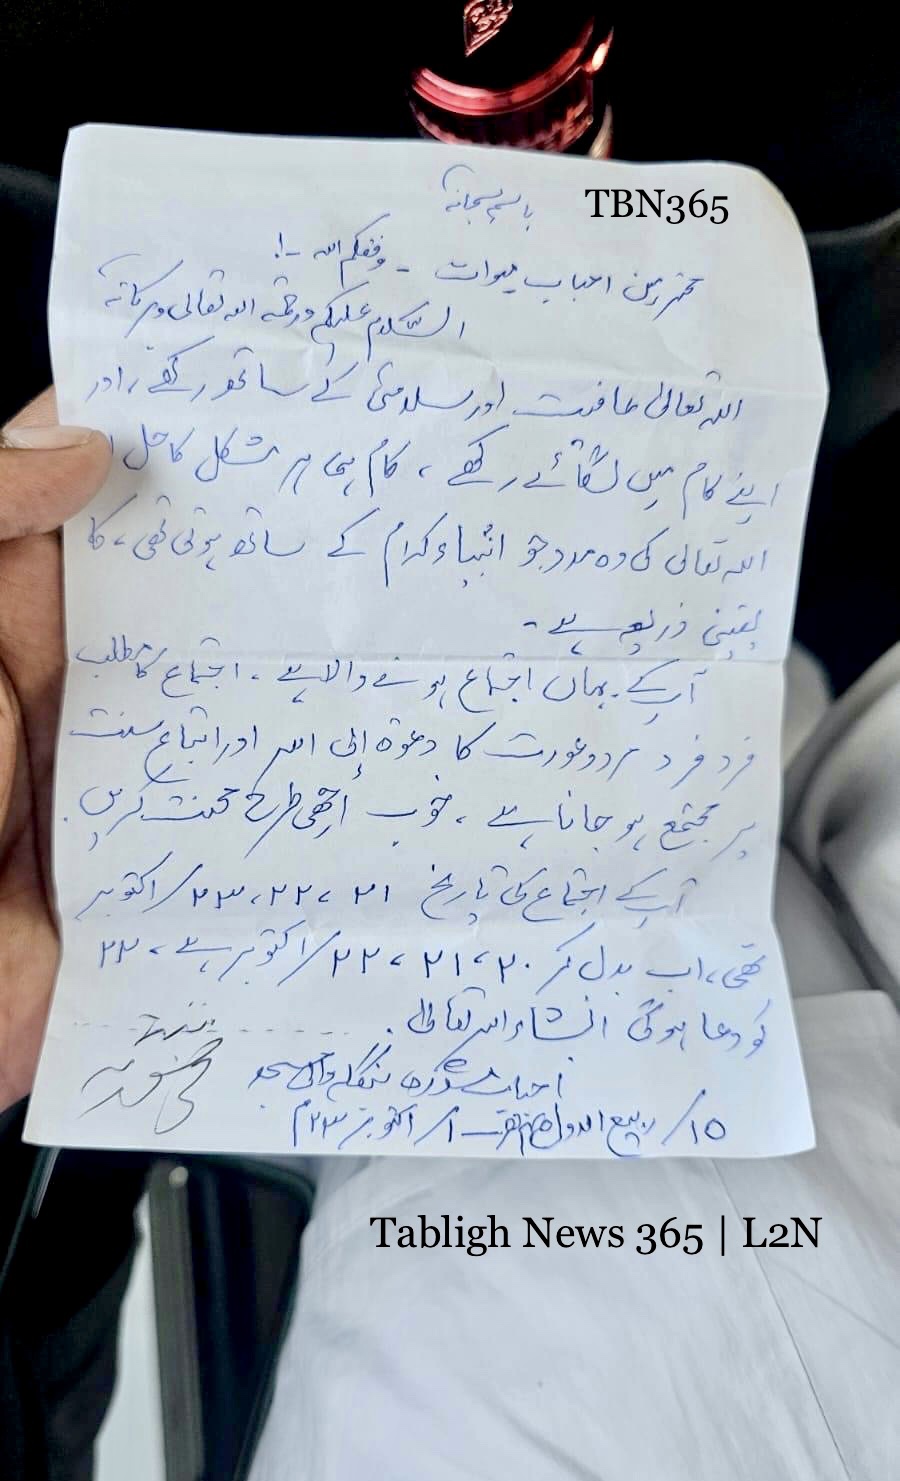 باسمہ سبحانہ
TBN365
محترمین احباب میوات - وفقکم اللہ -!
السلام علیکم ورحمۃ اللہ تعالی وبرکاتہ
اللہ تعالی عافیت اور سلامتی کے ساتھ رکھے، اور
اپنے کام میں لگائے رکھے، کام ہی ہر مشکل کا حل
اللہ تعالی کی وہ مدد جو انبیاء کرام کے ساتھ ہوتی تھی، کا
یقینی ذریعہ ہے -
آپ کے یہاں اجتماع ہونے والا ہے، اجتماع کا مطلب
فرد فرد مرد وعورت کا دعوۃ إلی اللہ اور اتباع سنت
پر مجتمع ہو جانا ہے، خوب اچھی طرح محنت کریں.
آپ کے اجتماع کی تاریخ ۲۱، ۲۲، ۲۳/ اکتوبر
تھی، اب بدل کر ۲۰، ۲۱، ۲۲/ اکتوبر ہے، ۲۲
کو دعا ہوگی انشاء اللہ تعالی.
احباب شوری بنگلہ والی مسجد
۱۵/ ربیع الاول ۱/ اکتوبر ۲۳م
Tabligh News 365 | L2N